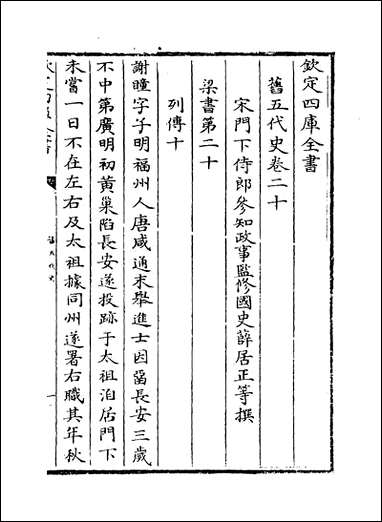 欽定四庫全書
舊五代史卷二十
宋門下侍郎參知政事監修國史薛居正等撰
梁書第二十
列傳十
謝瞳字子明福州人唐咸通末舉進士因留長安三歲
不中第廣明初黃巢陷長安遂投跡于太祖洎居門下
未嘗一日不在左右及太祖據同州遂署右職其年秋
舊五代史
一